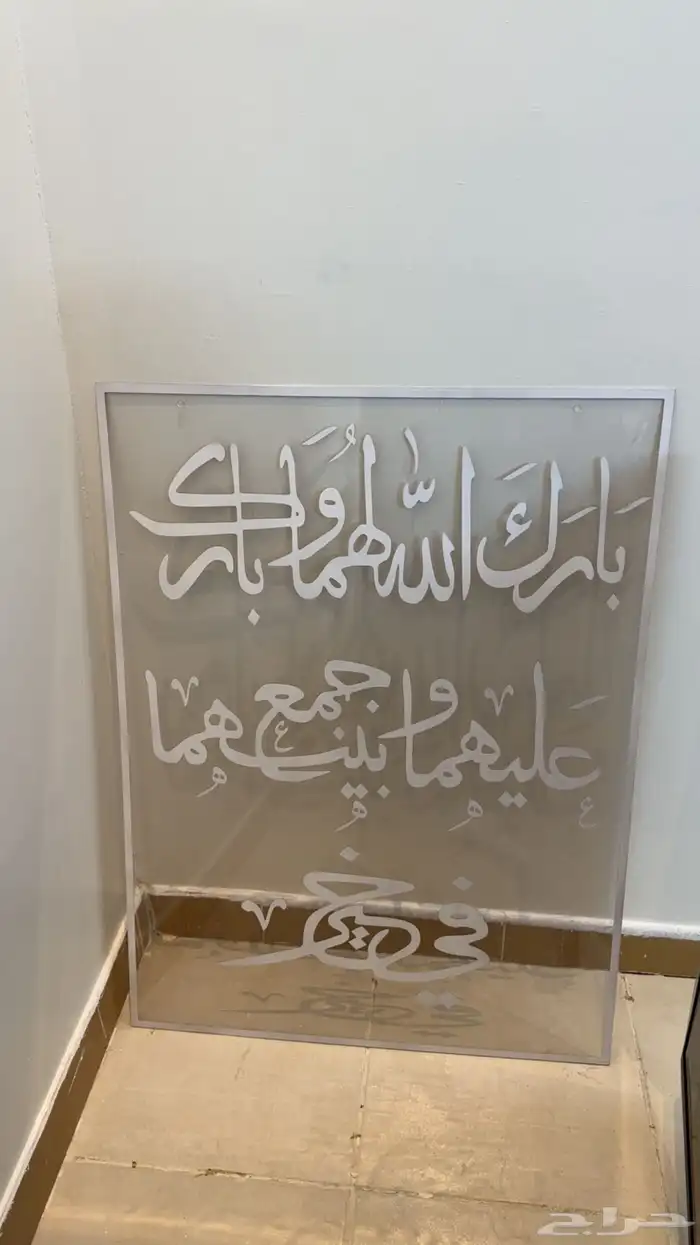 بَارَكَ اللّٰه لهُما وَبارك
عَليهما وجمع بينهما
في خير
حراج